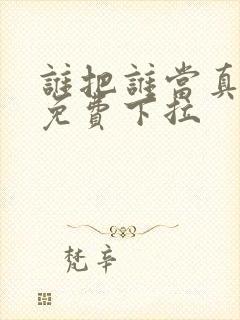 誰把誰當真
免費下拉
梵辛